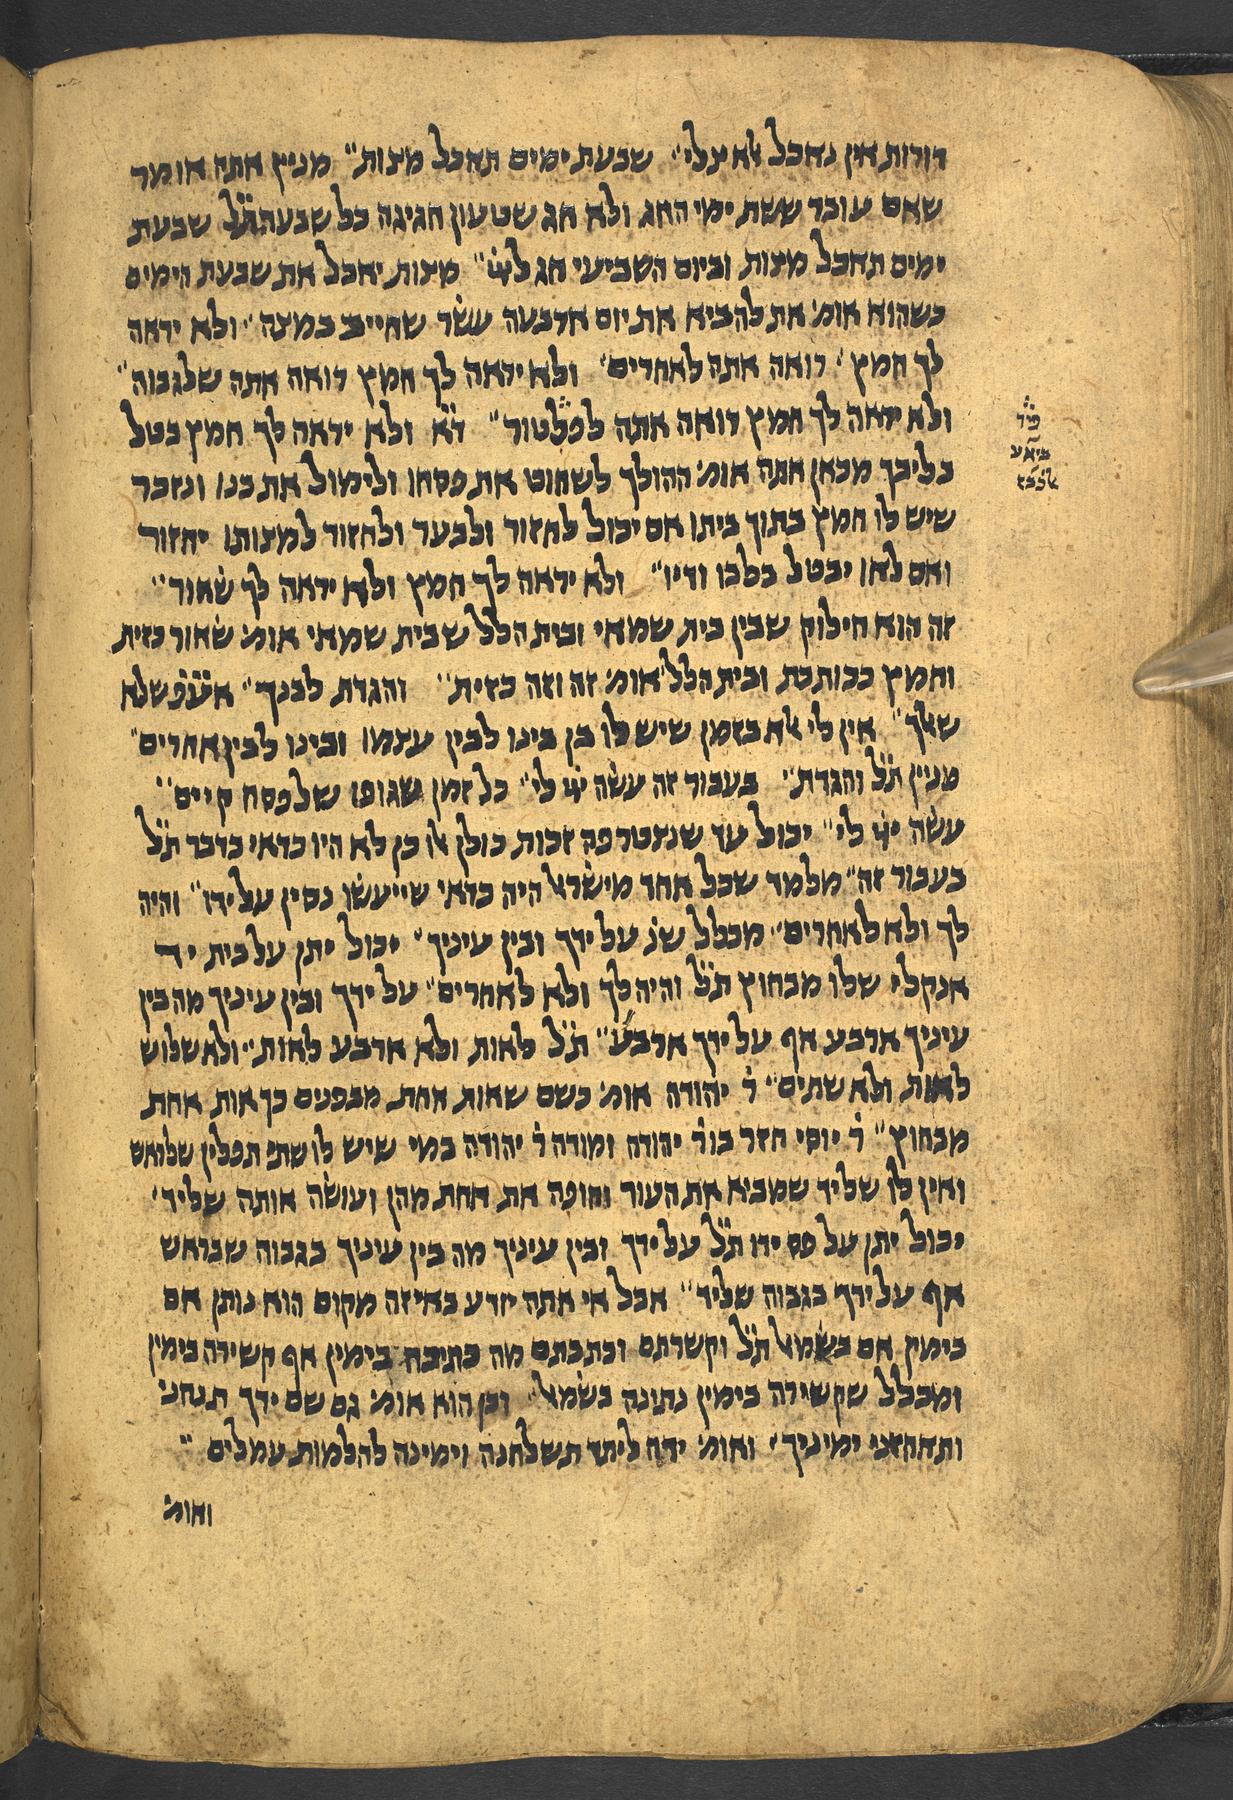 דורות אין נאכל אלא צלי״ שבעת ימים תאכל מצות״ מניין אתה אומר
שאם עובר ששת ימי החג ולא חג שטעון חגיגה כל שבעה ת״ל שבעת
ימים תאכל מצות וביום השביעי חג ליי״ מצות יאכל את שבעת הימים
כשהוא אומ׳ את להביא את יום ארבעה עשׂר שחייב במצה״ ולא יראה
לך חמץ״ רואה אתה לאחרים״ ולא יראה לך חמץ רואה אתה שלגבוה״
ולא יראה לך חמץ רואה אתה לפלטור״ ד״א ולא יראה לך חמץ בטל
בליבך מכאן אתה אומ׳ ההולך לשחוט את פסחו ולימול את בנו ונזכר
שיש לו חמץ בתוך ביתו אם יכול לחזור ולבער ולחזור למצותו יחזור
ואם לאו יבטל בלבו ודיו״ ולא יראה לך חמץ ולא יראה לך שׂאור״
זה הוא חילוק שבין בית שמאי ובית הלל שבית שמאי אומ׳ שׂאור כזית
וחמץ ככותבת ובית הלל אומ׳ זה וזה כזית״ והגדת לבנך״ אע״פ שלא
שאלך״ אין לי אלא בזמן שיש לו בן בינו לבין עצמו ובינו לבין אחרים״
מניין ת״ל והגדת״ בעבור זה עשׂה יי לי״ כל זמן שגופו שלפסח קיים״
עשׂה יי לי״ יכול עד שנצטרפה זכות כולן אלו כן לא היו כדאי כדבר ת״ל
בעבור זה״ מלמד שכל אחד מישׂראל היה כדאי שייעשׂו נסין על ידו״ והיה
לך ולא לאחרים״ מכלל שנ׳ על ידך ובין עיניך״ יכול יתן על בית יד
אנקלי שלו מבחוץ ת״ל והיה לך ולא לאחרים״ על ידך ובין עיניך מה בין
עיניך ארבע אף על ידך ארבע״ ת״ל לאות ולא ארבע לאות״ ולא שלוש
לאות ולא שתים״ ר׳ יהודה אומ׳ כשם שאות אחת מבפנים כך אות אחת
מבחוץ״ ר׳ יוסי חזר בו ר׳ יהודה ומודה ר׳ יהודה במי שיש לו שתי תפלין שלראש
ואין לו שליד שמביא את העור וחופה את אחת מהן ועושׂה אותה שליד״
יכול יתן על פס ידו ת״ל על ידך ובין עיניך מה בין עיניך בגבוה שבראש
אף על ידך בגבוה שליד״ אבל אי אתה יודע באיזה מקום הוא נותן אם
בימין אם בשׂמאל ת״ל וקשרתם וכתבתם מה כתיבה בימין אף קשירה בימין
ומכלל שקשירה בימין נתונה בשׂמאל״ וכן הוא אומ׳ גם שם ידך תנחני
ותאחזני ימיניך״ ואומ׳ ידה ליתד תשלחנה וימינה להלמות עמלים״
ואומ׳